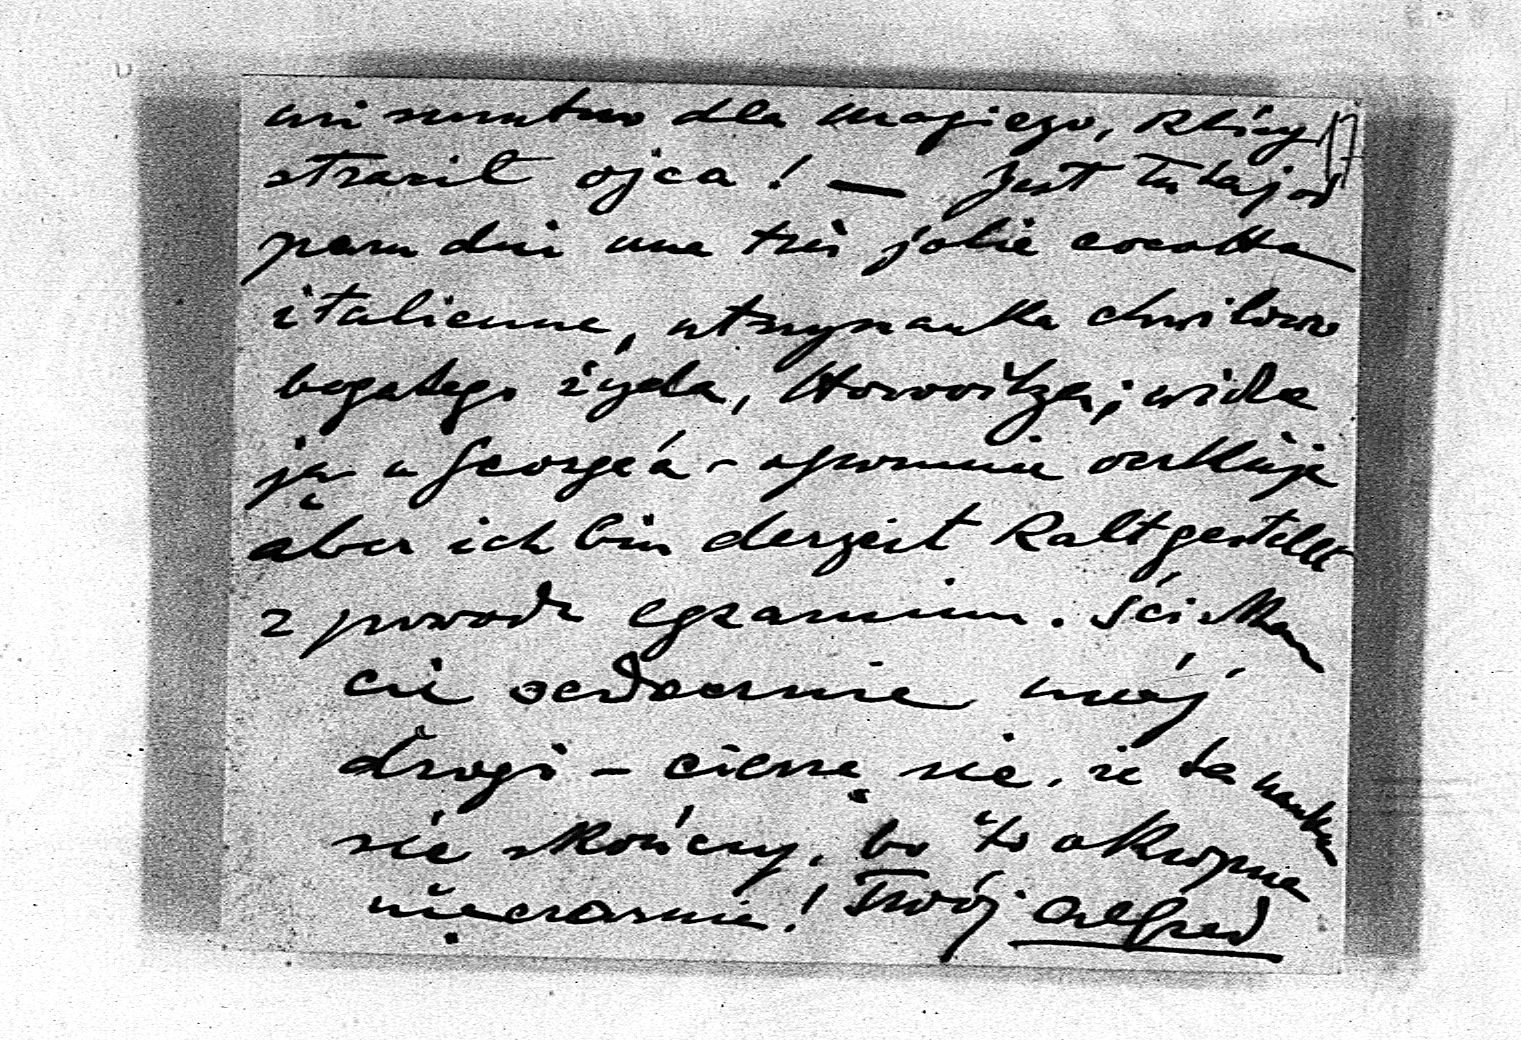 mi smutno dla Magiego, który
stracił ojca! — Jest tutaj od
paru dni une très jolie cocotte
italienne, utrzymanka chwilowo
bogatego żyda, Horovitza; widzę
ją u George'a - ogromnie
aber ich bin derzeit kaltgestellt
z powodu egzaminu. Ściskam
cię serdecznie mój
drogi - cieszę się, że ta nauka
się skończy, bo to okropne
męczarnie! Twój Alfred
17